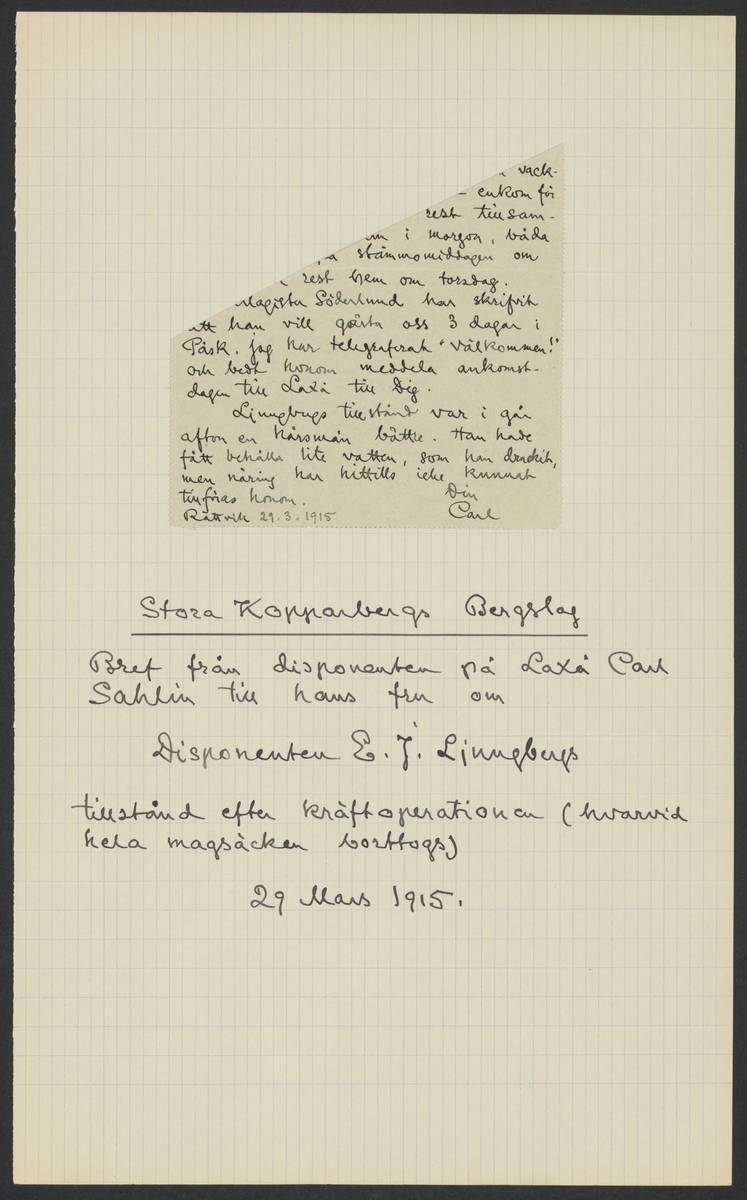 vack-
– enkom för
rest tillsam-
i morgon, båda
stämmomiddagen om
rest hem om torsdag.
Magister Söderlund har skrifvit
att han vill gästa oss 3 dagar i
Påsk. Jag har telegraferat "Välkommen!"
och bedt honom meddela ankomst-
dagen till Laxå till Dig.
Ljungbergs tillstånd var i går
afton en hårsmån bättre. Han hade
fått behålla lite vatten, som han druckit,
men näring har hittills icke kunnat
tillföras honom.
Din
Rättvik 29.3.1915
Carl
Stora Kopparbergs Bergslag
Bref från disponenten på Laxå Carl
Sahlin till hans fru om
Disponenten E. J. Ljungbergs
tillstånd efter kräftoperationen (hvarvid
hela magsäcken borttogs)
29 Mars 1915.